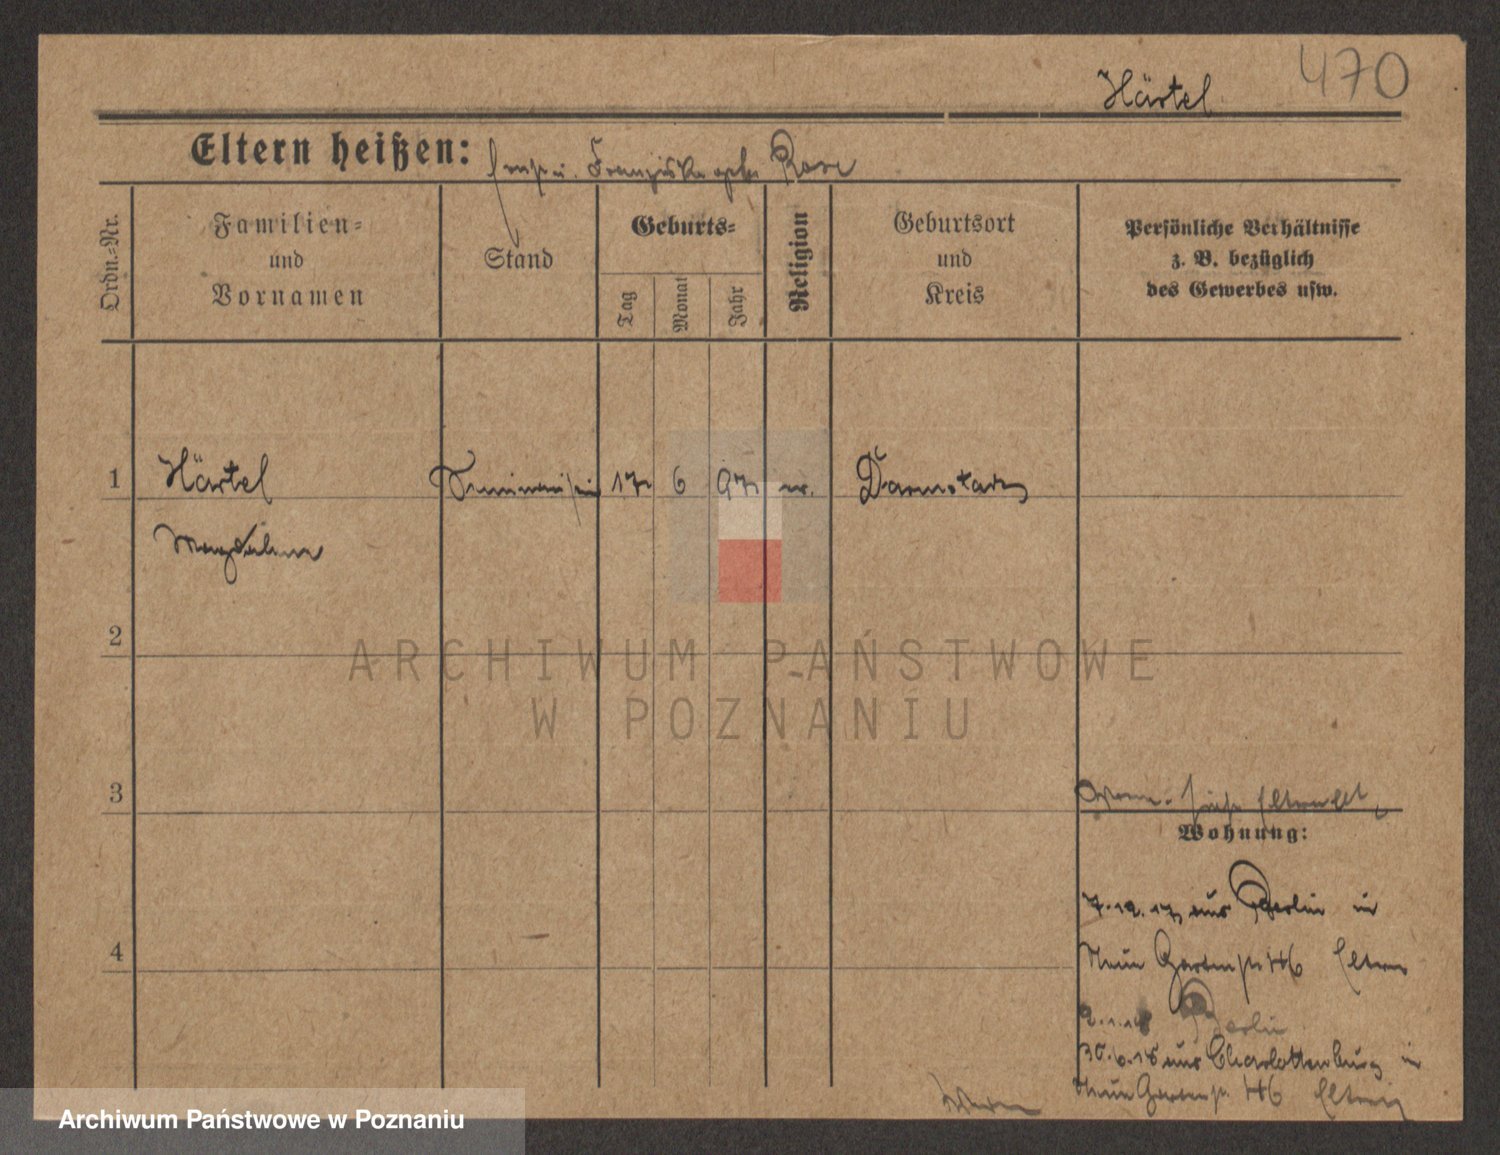 470
Härtel
Eltern heißen: Franziska geb. Rose
Ordn.-Nr.
Familien-
und
Vornamen
Stand
Geburts-
Tag
Monat
Jahr
Religion
Geburtsort
und
Kreis
Persönliche Verhältnisse
z. B. bezüglich
des Gewerbes usw.
1 Härtel 17 6 97 Darmstadt
Magdalene
2
ARCHIWUM PAŃSTWOWE
W POZNANIU
3
Wohnung:
7.12.17 aus Berlin in
Neue Gartenstr 46 Eltern
4
2.1.18 Berlin
30.6.18 aus Charlottenburg in
Neue Gartenstr. 46 Eltern
Archiwum Państwowe w Poznaniu